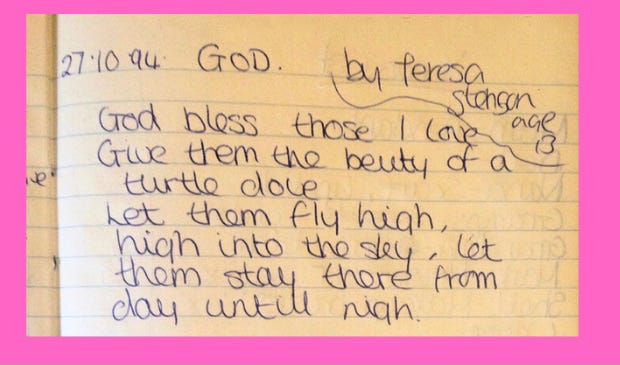 27.10.94. GOD. by Teresa
Stenson
age
13
God bless those I love
Give them the beuty of a
turtle dove
Let them fly high,
high into the sky, let
them stay there from
day untill nigh.